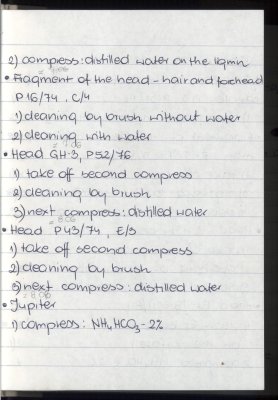 2) compress: distilled water on the ligmin
• Fragment of the head - hair and forehead
P16/74, C/4
1) cleaning by brush without water
2) cleaning with water
• Head GH-3, P52/76
1) take off second compress
2) cleaning by brush
3) next compress: distilled water
• Head P43/74, E/3
1) take off second compress
2) cleaning by brush
3) next compress: distilled water
• Jupiter
1) compress: NH₄HCO₃ - 2%